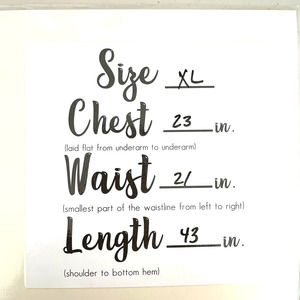 Size XL
Chest 23 in.
(laid flat from underarm to underarm)
Waist 21 in.
(smallest part of the waistline from left to right)
Length 43 in.
(shoulder to bottom hem)